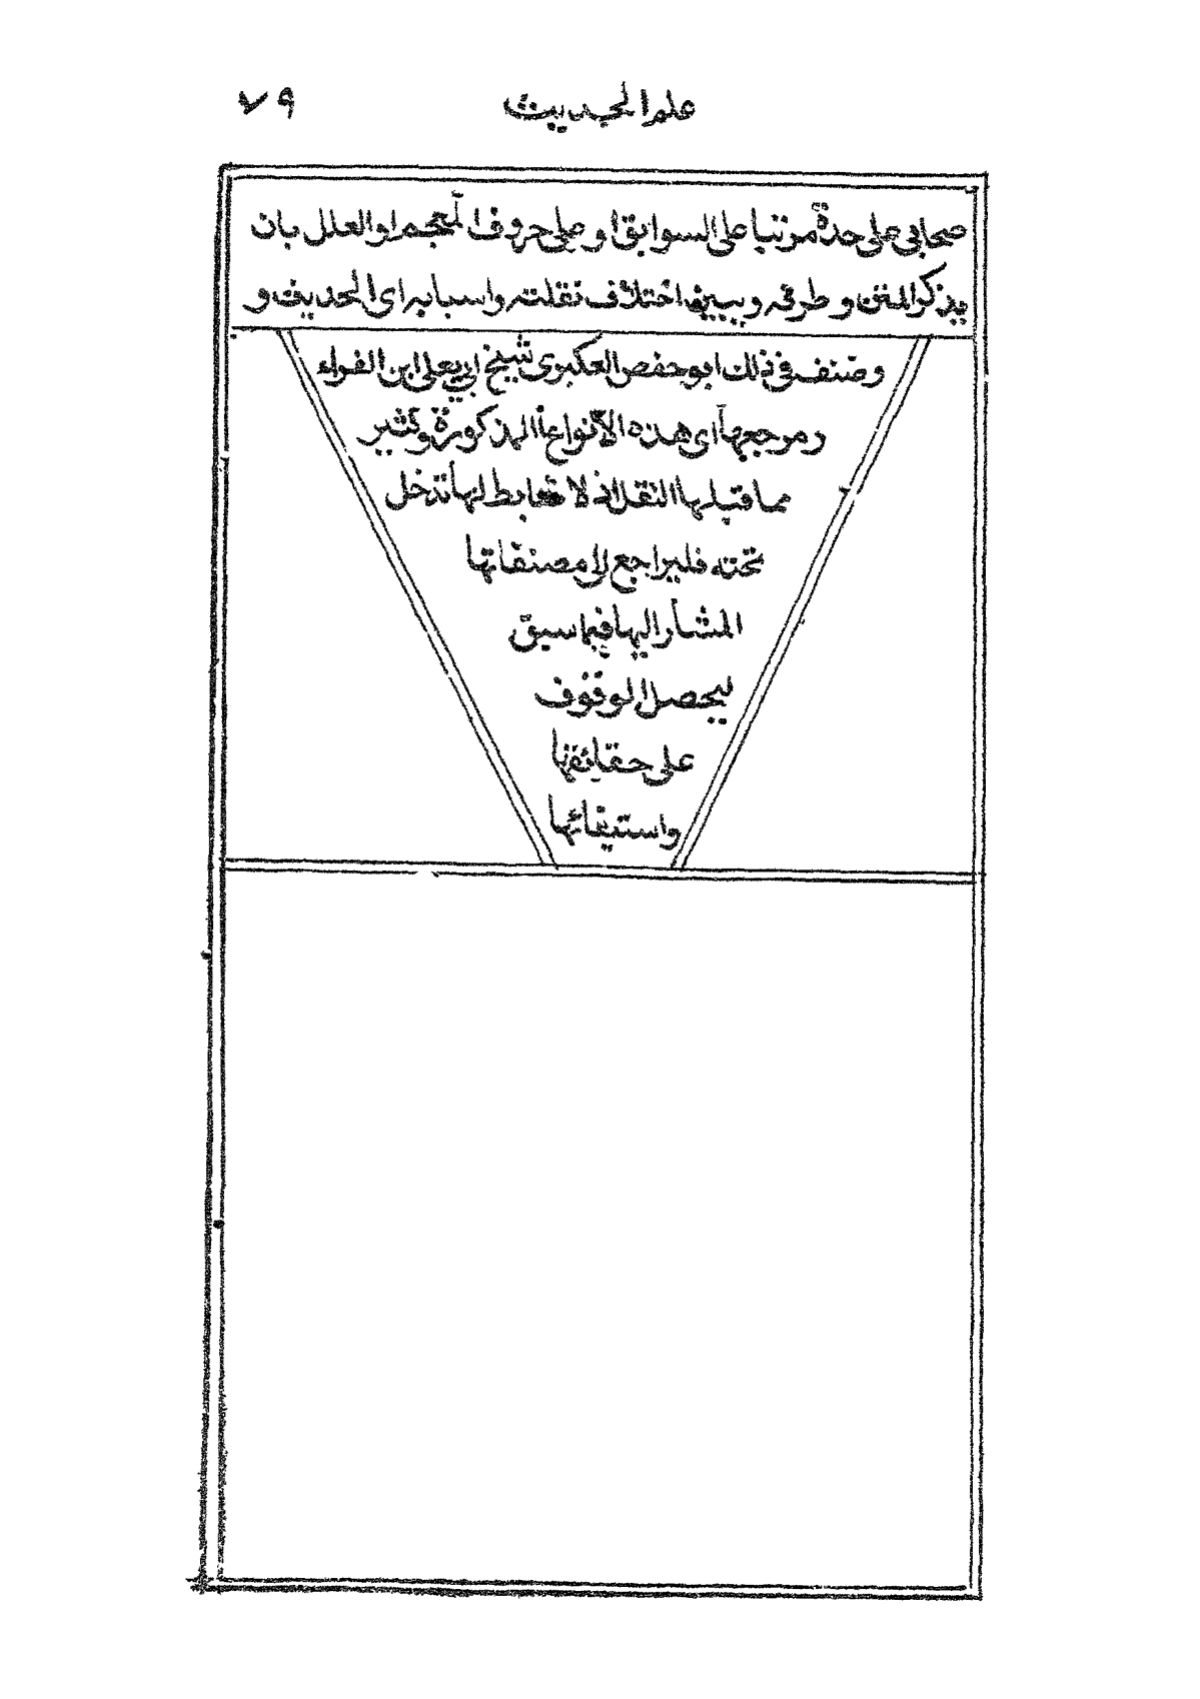 علم الحديث ٧٩
صحابي على حدة مرتبا على السوابق او على حروف المعجم او العلل بان
يذكر المتن و طرقه و يبين اختلاف نقلته واسبابه اى الحديث و
وصنف فى ذلك ابو حفص العكبرى شيخ ابي يعلى ابن الفراء
ومرجعها اى هذه الانواع المذكورة وكثير
مما قبلها النقل اذ لا ضابط لها تدخل
تحته فليراجع الى مصنفاتها
المشار اليها فيما سبق
ليحصل الوقوف
على حقائقها
واستيفائها